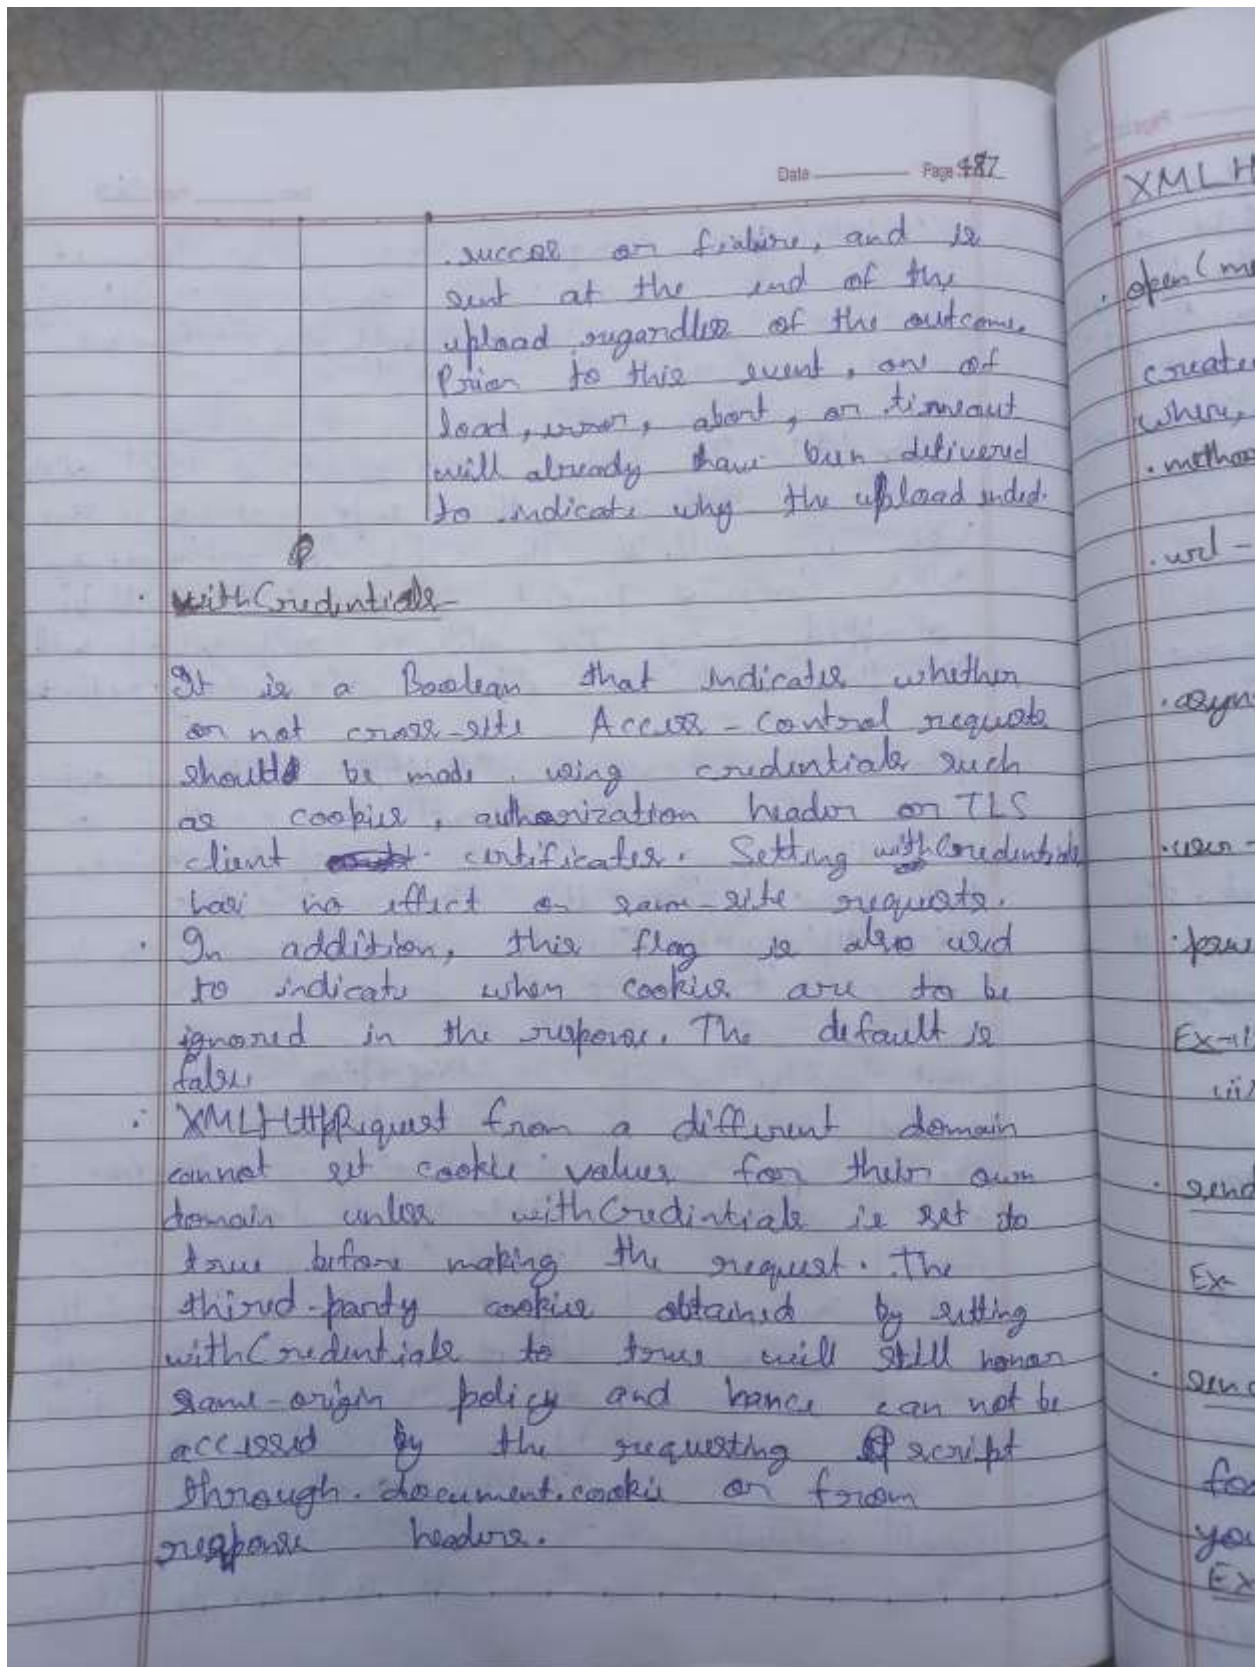 Date Page 487
success or failure, and is
sent at the end of the
upload regardless of the outcome.
Prior to this event, one of
load, error, abort, or timeout
will already have been delivered
to indicate why the upload ended.
• withCredentials-
It is a Boolean that indicates whether
or not cross-site Access-Control requests
should be made using credentials such
as cookies, authorization header or TLS
client certificates. Setting withCredentials
has no effect on same-site requests.
• In addition, this flag is also used
to indicate when cookies are to be
ignored in the response. The default is
false.
• XMLHttpRequest from a different domain
cannot set cookie values for their own
domain unless withCredintials is set to
true before making the request. The
third-party cookies obtained by setting
withCredentials to true will still honor
same-origin policy and hance can not be
accessed by the requesting script
through document.cookie or from
response headers.
XMLH
• open(me
create
where,
• method
• url -
• asyn
• user -
Ex-
• send
Ex-
• send
for
you
Ex